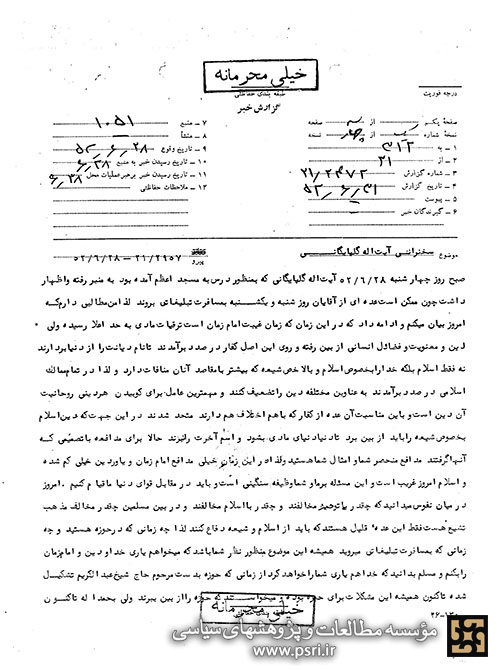 خیلی محرمانه
طبقه بندی حفاظتی
گزارش خبر
درجه فوریت
صفحه یکم از سه صفحه
نسخه شماره یک از چهار نسخه
۱ – به ۳۱۲
۲ – از ۲۱
۳ – شماره گزارش ۲۱/۲۴۷۲
۴ – تاریخ گزارش ۵۲٫۶٫۳۱
۵ – پیوست
۶ – گیرندگان خبر
۷ – منبع ۱۰۵۱
۸ – منشأ
۹ – تاریخ وقوع ۵۲٫۶٫۲۸
۱۰ – تاریخ رسیدن خبر به منبع ۶٫۲۸
۱۱ – تاریخ رسیدن خبر برهبر عملیات محل
۱۲ – ملاحظات حفاظتی
موضوع سخنرانی آیت اله گلپایگانی پیرو ۲۱/۲۹۵۷ – ۵۲/۶/۲۸
صبح روز چهار شنبه ۵۲/۶/۲۸ آیت اله گلپایگانی که بمنظور درس به مسجد اعظم آمده بود به منبر رفته واظهار
داشت چون ممکن است عده ای از آقایان روز شنبه و یکشنبه بمسافرت تبلیغاتی بروند لذا من مطالبی دارم که
امروز بیان میکنم و ادامه داد که در این زمان که زمان غیبت امام زمان است ترقیات مادی به حد اعلا رسیده ولی
دین و معنویت و فضائل انسانی از بین رفته و روی این اصل کفار در صدد برآمدند تا نام دیانت را از دنیا بردارند
نه فقط اسلام بلکه خدا را بخصوص اسلام و بالاخص شیعه که بیشتر با مقاصد آنان منافات دارد و لذا در تمام ممالک
اسلامی در صدد برآمدند به عناوین مختلفه دین را تضعیف کنند و مهمترین عامل برای کوبیدن هر دینی روحانیت
آن دین است و باین مناسبت آن عده از کفار که با هم اختلاف هم دارند متحد شدند در این جهت که دین اسلام
بخصوص شیعه را باید از بین برد تا دنیا دنیای مادی بشود و اسم آخرت را نبرند حالا برای مدافعه با تصمیمی که
آنها گرفتند مدافع منحصر شما و امثال شما هستید ولذا در این زمان خیلی مدافع امام زمان و یاور دین خیلی کم شده
و اسلام امروز غریب است و این مسئله بر ما و شما وظیفه سنگینی است و باید در مقابل قوای دنیا ما قیام کنیم . امروز
در میان نفوس میدانید که چقدر با توحید مخالفند و چقدر با اسلام مخالفند و در بین مسلمین چقدر مخالف مذهب
تشیع هست فقط این عده قلیل هستند که باید از اسلام و شیعه دفاع کنند لذا چه زمانی که در حوزه هستید و چه
زمانی که بمسافرت تبلیغاتی میروید همیشه این موضوع منظور نظر شما باشد که میخواهم یاری خدا و دین و امام زمان
را بکنم و مسلم بدانید که خدا هم یاری شما را خواهد کرد از زمانی که حوزه بدست مرحوم حاج شیخ عبدالکریم تشکیل
شده تاکنون همیشه این مشکلات برای حوزه بوده و میخواستند که حوزه را از بین ببرند ولی بحمد اله تاکنون
خیلی محرمانه
مؤسسه مطالعات و پژوهشهای سیاسی
www.psri.ir